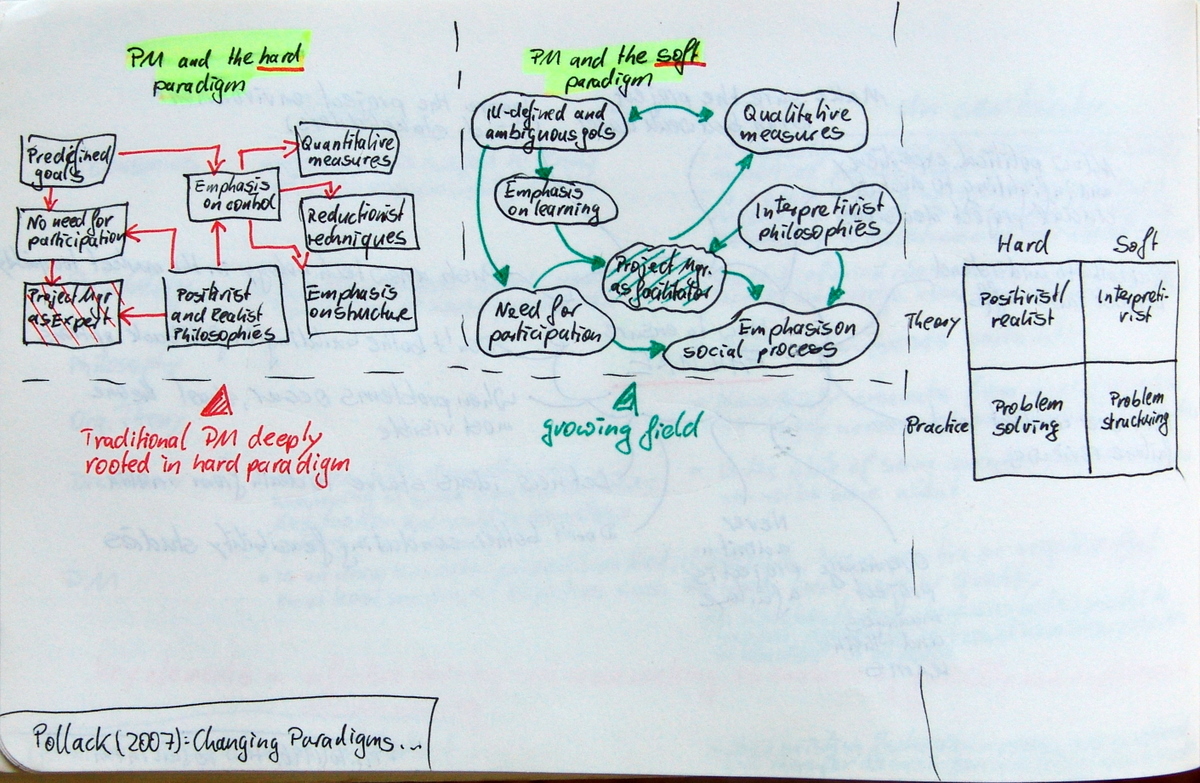 PM and the hard
paradigm
Predefined
goals
No need for
participation
Project Mgr
as Expert
Emphasis
on control
Positivist
and Realist
Philosophies
Quantitative
measures
Reductionist
techniques
Emphasis
on structure
Traditional PM deeply
rooted in hard paradigm
PM and the soft
paradigm
Ill-defined and
ambiguous gols
Qualitative
measures
Emphasis
on learning
Interpretivist
philosophies
Project Mgr.
as facilitator
Need for
participation
Emphasis on
social process
growing field
Hard Soft
Theory
Positivist/
realist
Interpreti-
vist
Practice
Problem
solving
Problem
structuring
Pollack (2007): Changing Paradigms...